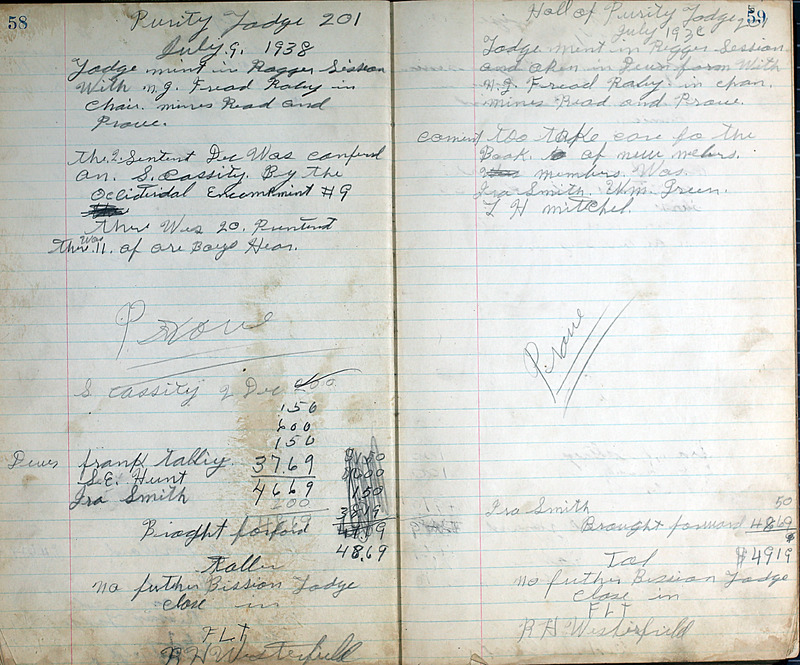 58
Purity Lodge 201
July 9, 1938
Lodge ment in Ragger Session
With N.g. Fread Raby in
chair. mines Read and
Prove.
the 2 Sentent Dec Was conferd
on S. Cassity. By the
Occitidal Encompmint #9
ther Was 20. Prentend
Ther Was 11. of are Boys Hear.
Prove
S Cassity 2 Dec 200
150
600
150
Dews frank Rabby 37.69
S.E. Hunt
Ira Smith 46 69
200
Broght forford
48.69
no futher Bission Lodge
close in
FLT
R H Westerfield
59
Hall of Purity Lodge
July 193
Lodge ment in Regger Session
and open in Deus form With
N.g. Fread Raby in chair.
mines Read and Prove.
coment too take care fo the
Book of new mebers.
members Was
Ira Smith. W.m. Green.
L H mitchel.
Prove
Ira Smith 50
Brought forward 48.69
Tal $49 19
no futher Bission Lodge
close in
FLT
R H Westerfield